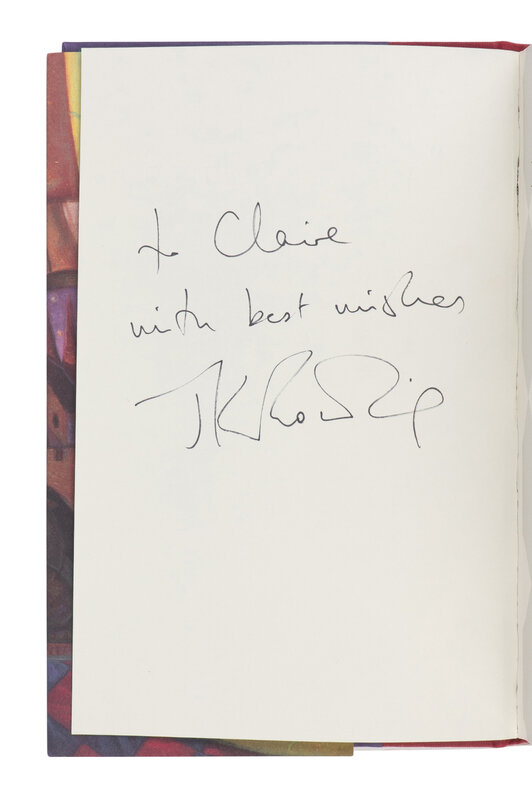 to Claire
with best wishes
JK Rowling